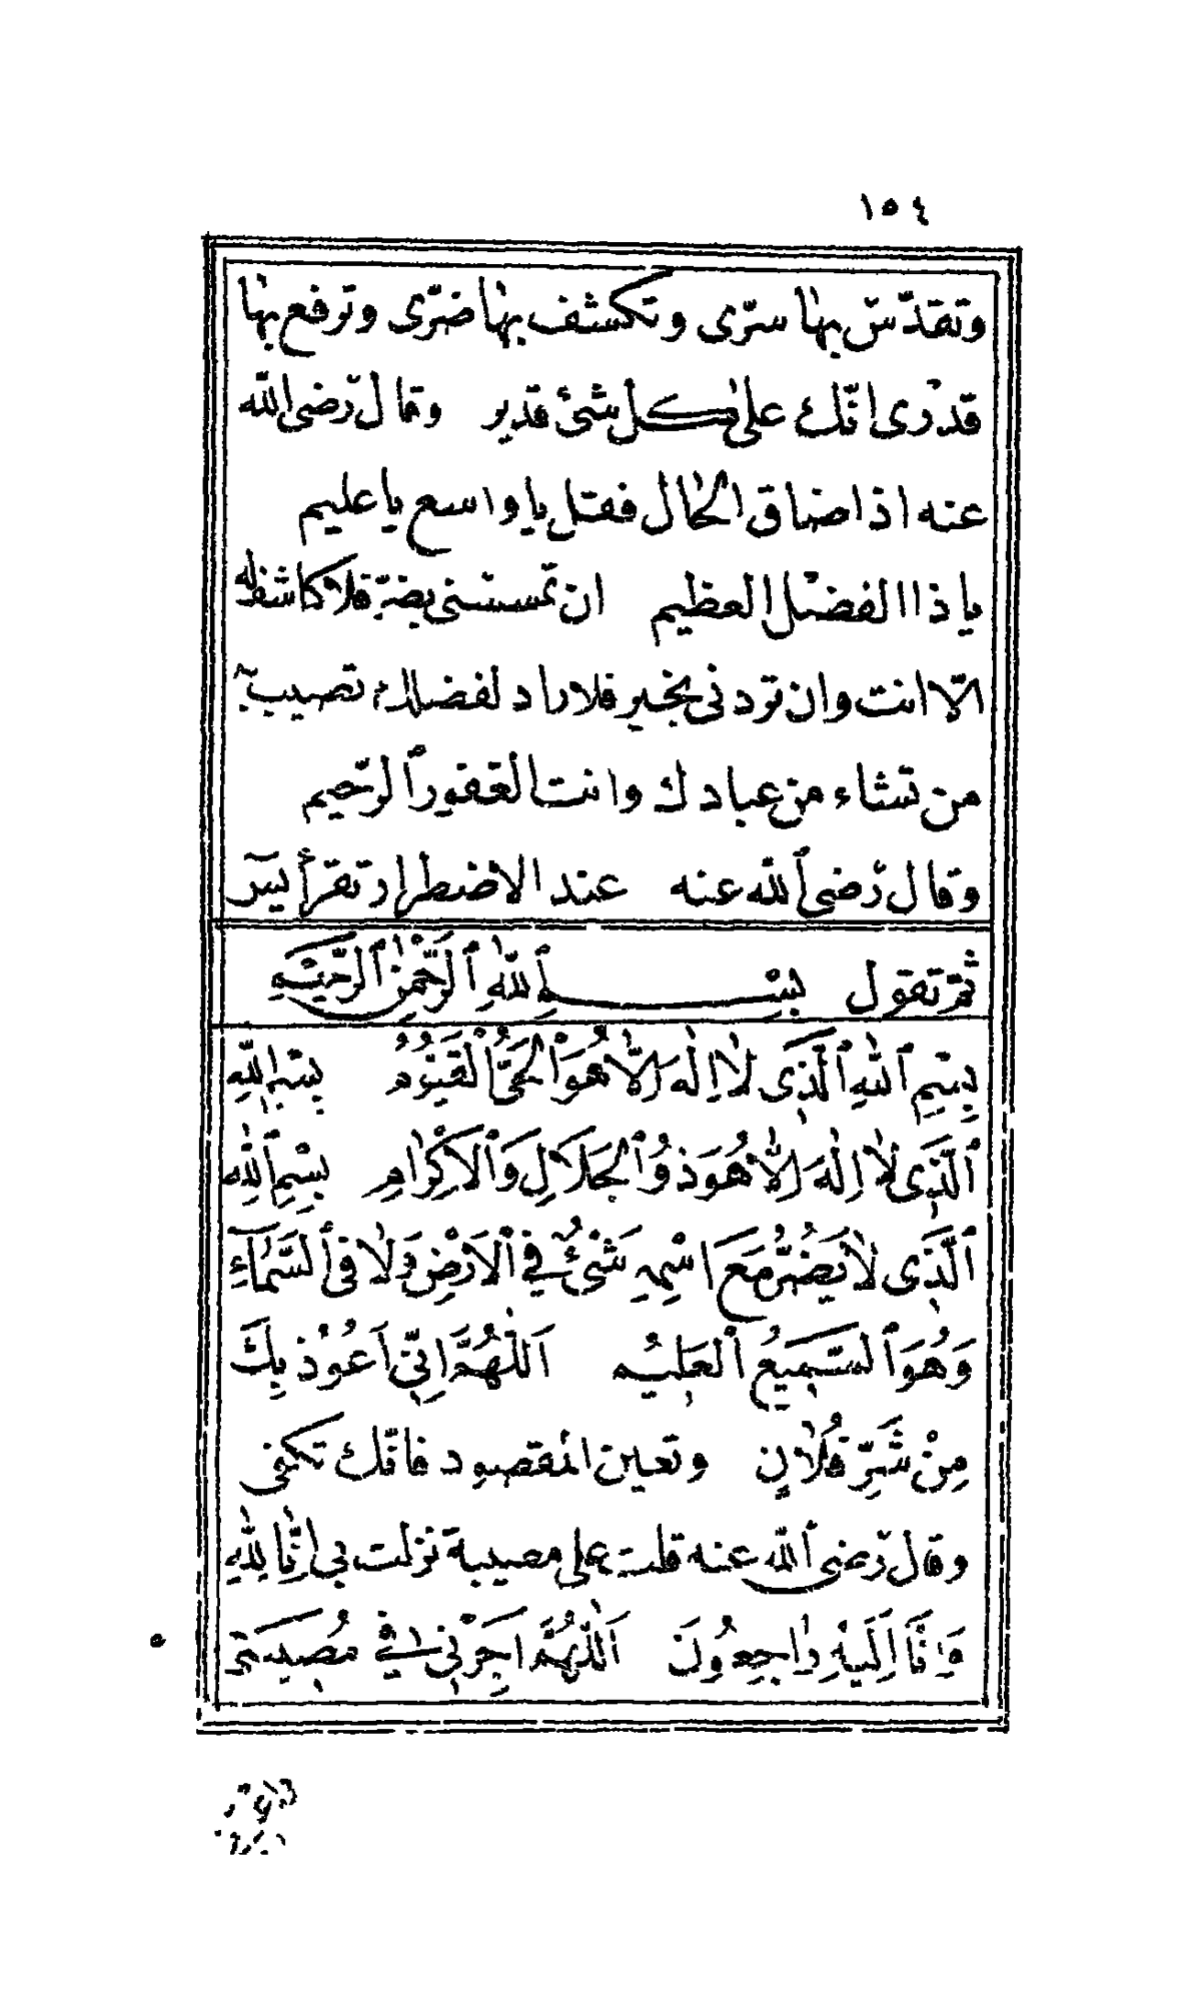 ١٥٤
وتقدّس بها سرّى وتكشف بها ضرّى وترفع بها
قدْرى انّك على كل شئ قدير وقال رّضى الله
عنه اذا ضاق الحال فقل يا واسع يا عليم
يا ذا الفضل العظيم ان تمسسنى بضرّ فلا كاشف له
الّا انت وان تردنى بخير فلا راد لفضلك تصيب به
من تشاء من عبادك وانت الغفور الرّحيم
وقال رّضى الله عنه عند الاضطرار تقرأ يسٓ
ثمّ تقول بِسْمِ اللّٰهِ الرَّحْمٰنِ الرَّحِيْمِ
بِسْمِ اللّٰهِ الَّذِى لَا اِلٰهَ اِلَّا هُوَ الْحَىُّ الْقَيُّوْمُ بِسْمِ اللّٰهِ
الَّذِى لَا اِلٰهَ اِلَّا هُوَ ذُو الْجَلَالِ وَالْاِكْرَامِ بِسْمِ اللّٰهِ
الَّذِى لَا يَضُرُّ مَعَ اسْمِهِ شَىْءٌ فِي الْاَرْضِ وَلَا فِى السَّمَآءِ
وَهُوَ السَّمِيعُ الْعَلِيْمُ اَللّٰهُمَّ اِنِّى اَعُوْذُ بِكَ
مِنْ شَرِّ فُلَانٍ وتعين المقصود فانّك تكفى
وقال رّضى الله عنه قلت على مصيبة نزلت بى اِنَّا لِلّٰهِ
وَاِنَّا اِلَيْهِ رَاجِعُونَ اَللّٰهُمَّ اجِرْنِى فِى مُصِيبَتِى